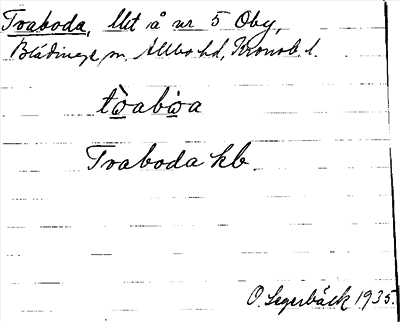 Tvaboda, lht å nr 5 Oby,
Blädinge sn, Allbo hd, Kronob. l.
tɷ̀abɷ̇a
Tvaboda kb.
O. Segerbäck 1935.